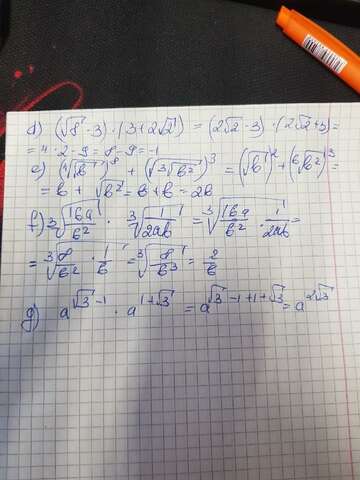 d) (√8 - 3) · (3 + 2√2) = (2√2 - 3) · (2√2 + 3) =
= 4 · 2 - 9 = 8 - 9 = -1
e) (⁴√b)⁸ + (³√√b²)³ = (√b)² + (⁶√b²)³ =
= b + √b² = b + b = 2b
f) ³√(16a/b²) · ³√(1/2ab) = ³√(16a/b² · 1/2ab) =
= ³√(8/b² · 1/b) = ³√(8/b³) = 2/b
g) a^(√3 - 1) · a^(1 + √3) = a^(√3 - 1 + 1 + √3) = a^(2√3)